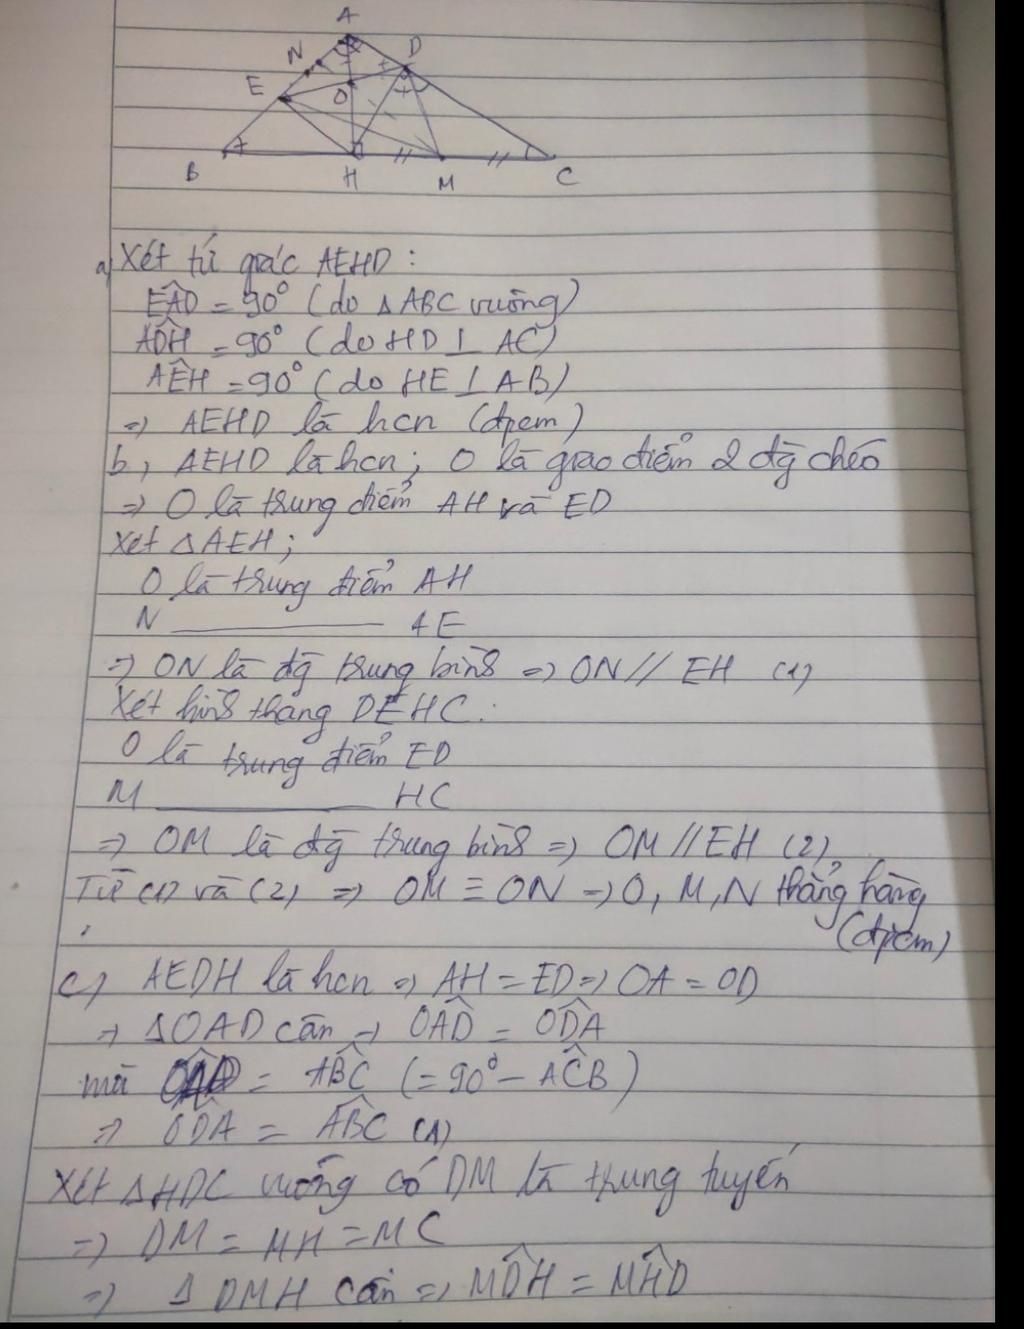 A
N
D
E
O
B
H
M
C
a, Xét tứ giác AEHD :
EAD̂ = 90° (do △ ABC vuông)
ADĤ = 90° (do HD ⊥ AC)
AEĤ = 90° (do HE ⊥ AB)
=> AEHD là hcn (đpcm)
b, AEHD là hcn; O là giao điểm 2 đg chéo
=> O là trung điểm AH và ED
Xét △ AEH;
O là trung điểm AH
N ———— AE
=> ON là đg trung bình => ON // EH (1)
Xét hình thang DEHC:
O là trung điểm ED
M ———— HC
=> OM là đg trung bình => OM // EH (2)
Từ (1) và (2) => OM ≡ ON => O, M, N thẳng hàng
(đpcm)
c, AEDH là hcn => AH = ED => OA = OD
=> △OAD cân => OAD̂ = ODÂ
mà OAD̂ = ABĈ (= 90° - ACB̂)
=> ODÂ = ABĈ (1)
Xét △HDC vuông có DM là trung tuyến
=> DM = MH = MC
=> △ DMH cân => MDĤ = MHD̂